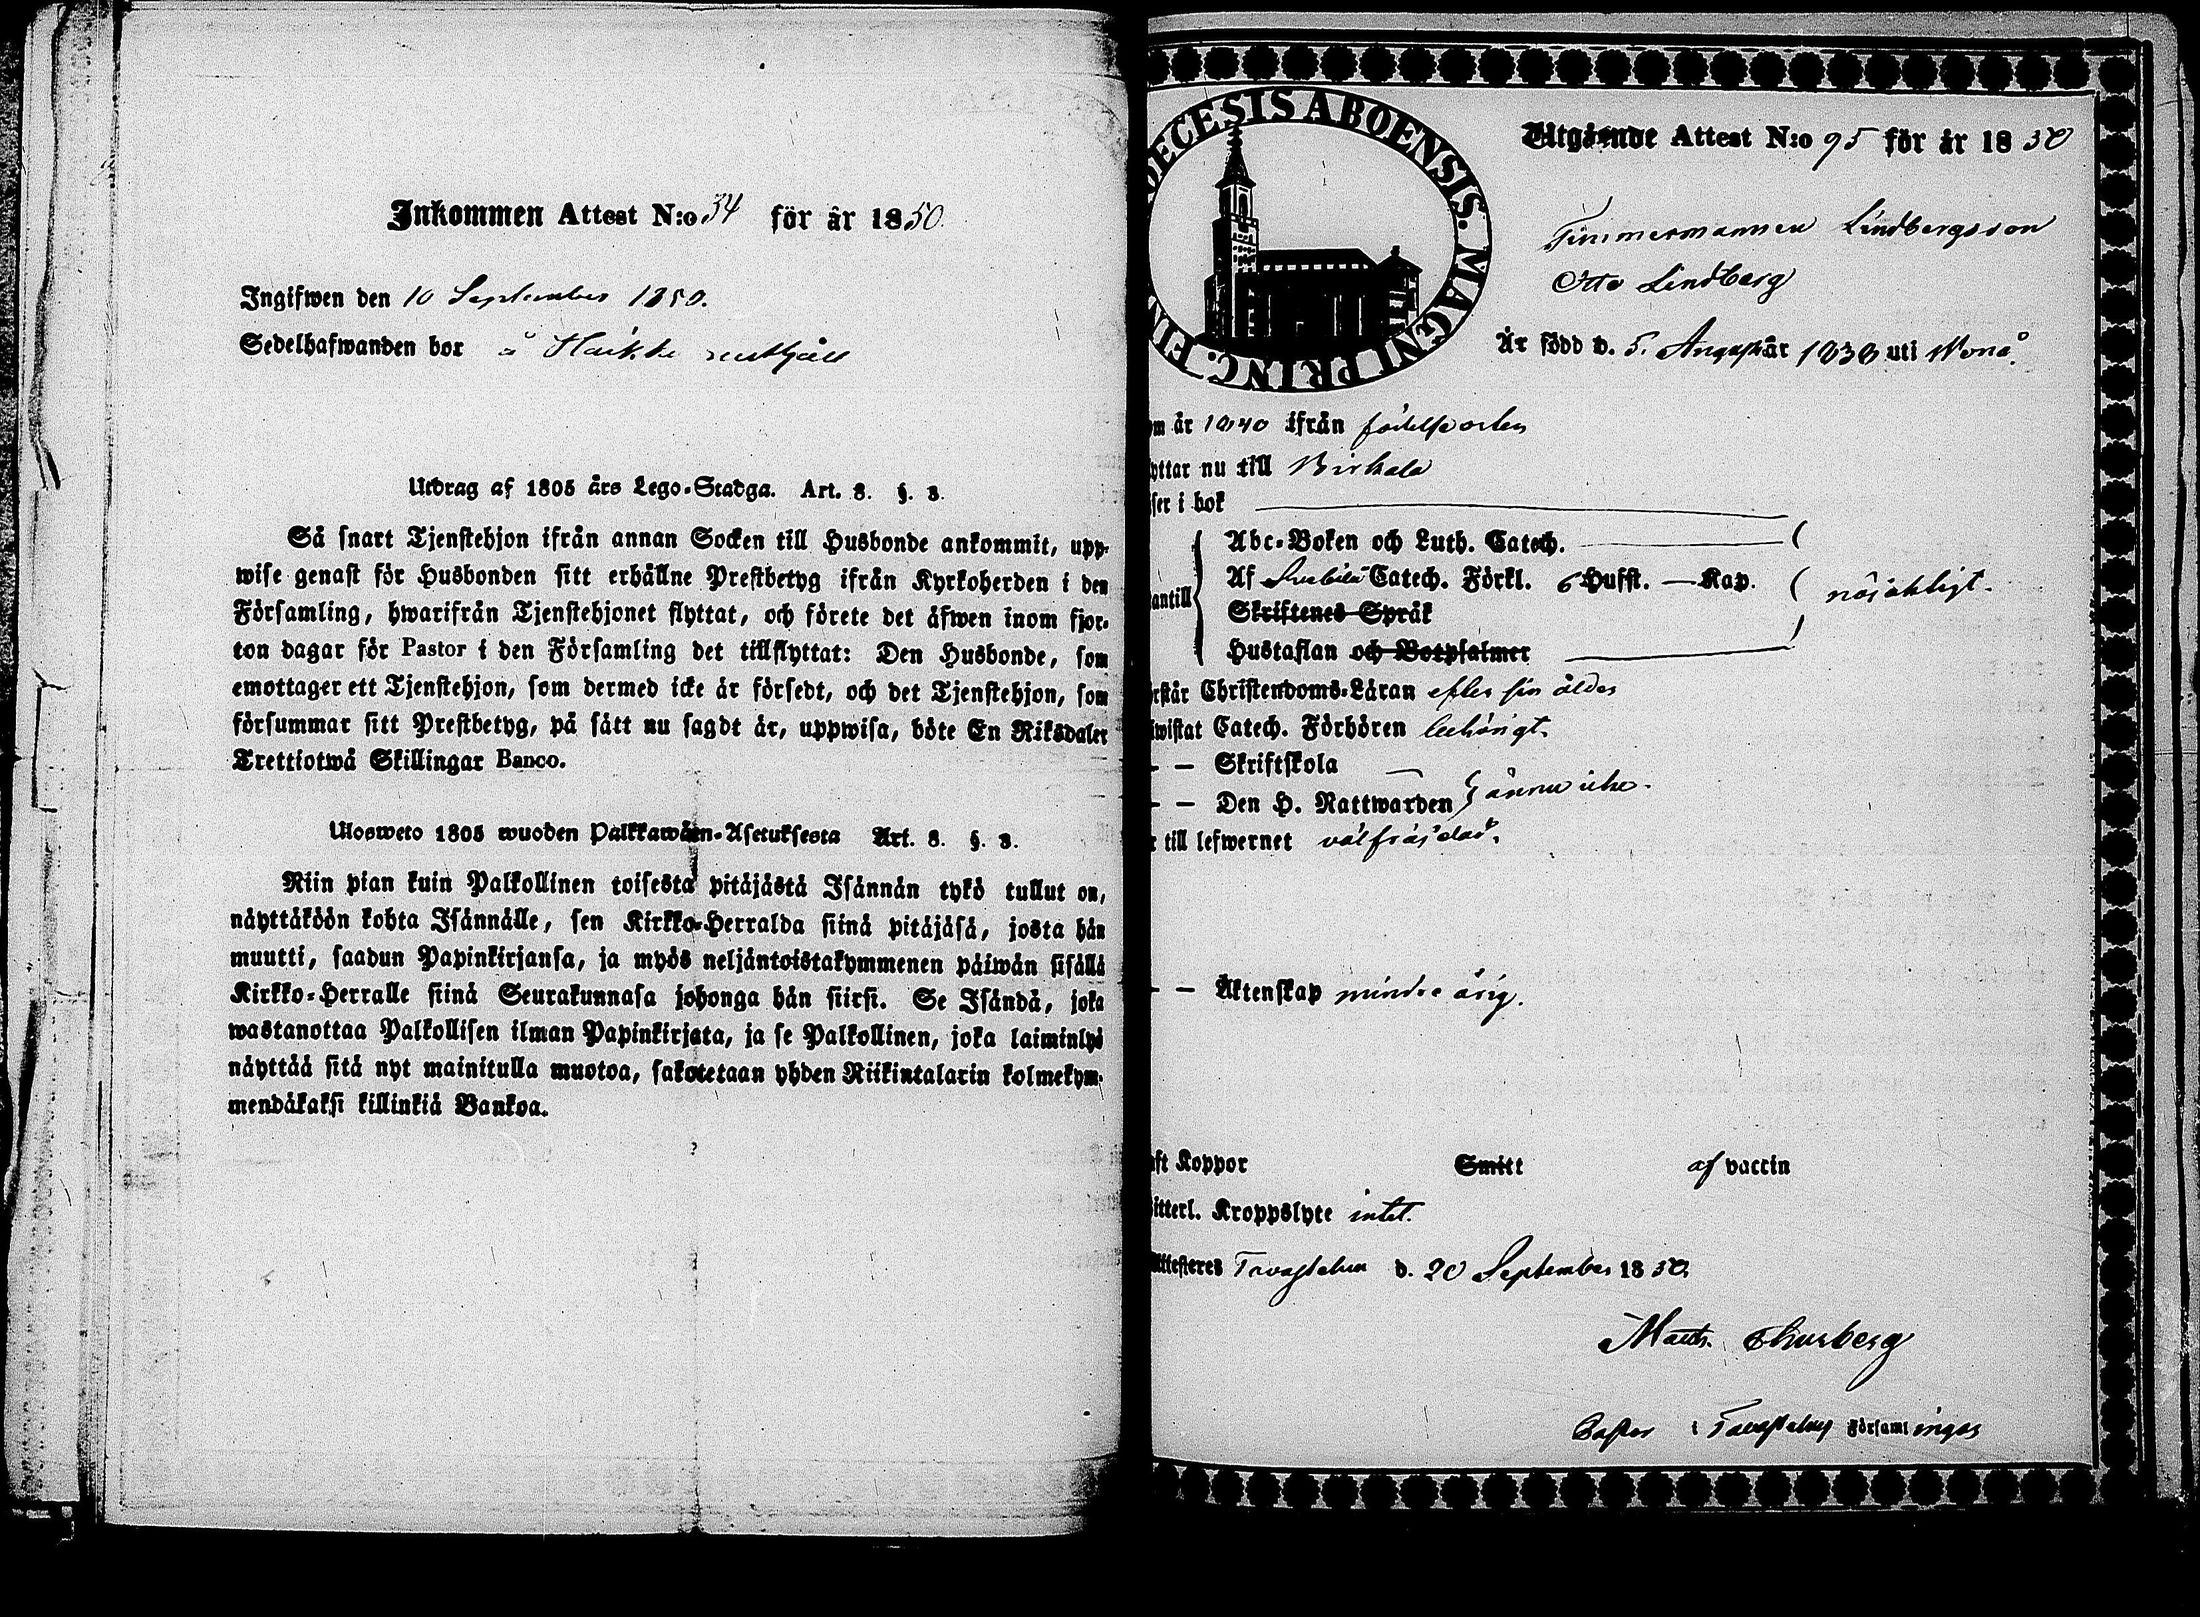 Inkommen Attest N:o 34 för år 1850.
Ingifwen den 10 September 1850.
Sedelhafwanden bor å Haikka rusthåll
Utdrag af 1805 års Lego-Stadga. Art. 8. §. 3.
Så snart Tjenstehjon ifrån annan Socken till Husbonde ankommit, upp-
wise genast för Husbonden sitt erhållne Prestbetyg ifrån Kyrkoherden i den
Församling, hwarifrån Tjenstehjonet flyttat, och förete det äfwen inom fjor-
ton dagar för Pastor i den Församling det tillflyttat: Den Husbonde, som
emottager ett Tjenstehjon, som dermed icke är försedt, och det Tjenstehjon, som
försummar sitt Prestbetyg, på sätt nu sagdt är, uppwisa, böte En Riksdaler
Trettiotwå Skillingar Banco.
Ulosweto 1805 wuoden Palkkawäen-Asetuksesta Art. 8. §. 3.
Niin pian kuin Palkollinen toisesta pitäjästä Isännän tykö tullut on,
näyttäköön kohta Isännälle, sen Kirkko-Herralda siinä pitäjäsä, josta hän
muutti, saadun Papinkirjansa, ja myös neljäntoistakymmenen päiwän sisällä
Kirkko-Herralle siinä Seurakunnasa johonga hän siirsi. Se Isändä, joka
wastanottaa Palkollisen ilman Papinkirjata, ja se Palkollinen, joka laiminlyö
näyttää sitä nyt mainitulla muotoa, sakotetaan yhden Riikintalarin kolmekym-
mendäkaksi killinkiä Bankoa.
DECESIS ABOENSIS. MAGNI PRINC. FIN
Utgående Attest N:o 95 för år 1850
Timmermannen Lindbergs son
Otto Lindberg
Är född d. 5. August år 1838 uti Wånå.
om år 1840 ifrån födelseorten
yttar nu till Birkala
ser i bok
antill
Abc-Boken och Luth. Catech.
Af Svebilii Catech. Förkl. 6 Hufst. — Kap.
nöjaktigt.
Skriftenes Språk
Hustaflan och Botpsalmer
rstår Christendoms-Läran efter sin ålder
iwistat Catech. Förhören behörigt.
– – Skriftskola
– – Den H. Nattwarden ännu icke.
r till lefwernet välfräjdad.
– – Äktenskap minderårig.
aft Koppor Smitt af vaccin
itterl. Kroppslyte intet.
Attesteres Tavastehus d. 20 September 1850.
Matts. Thurberg
Pastor i Tavastehus Församlingar